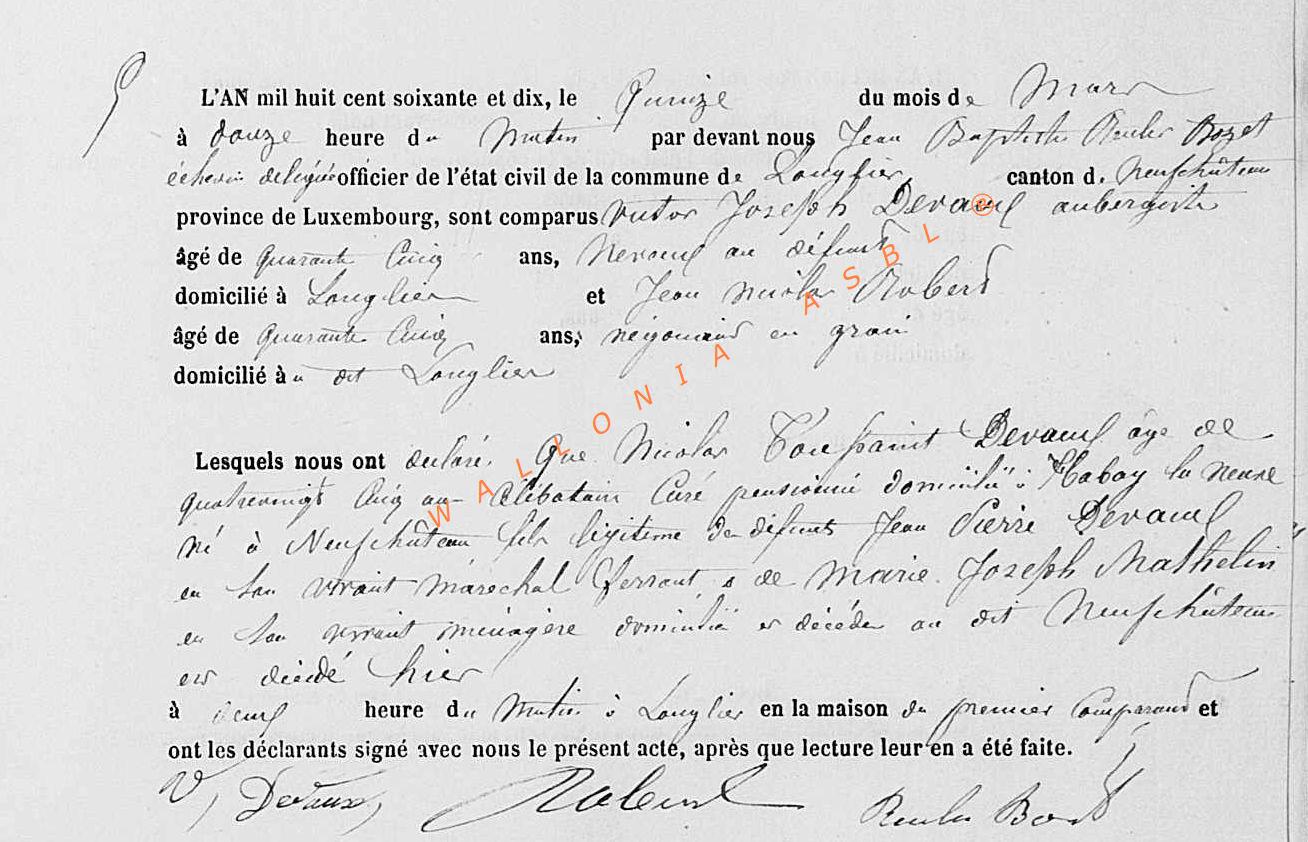 5
L'AN mil huit cent soixante et dix, le quinze du mois de Mars
à douze heure du Matin par devant nous Jean Baptiste Reuler Bozet
échevin délégué officier de l'état civil de la commune de Longlier, canton d. Neufchâteau
province de Luxembourg, sont comparus Victor Joseph Devaux aubergiste
âgé de quarante Cinq ans, Neveux au défunt
domicilié à Longlier et Jean Nicolas Robert
âgé de quarante Cinq ans, négociand en grain
domicilié à u dit Longlier
Lesquels nous ont déclaré. Que Nicolas Toussaint Devaux âge de
quatrevingt Cinq ans Célibataire Curé pensionné domicilié à Habay la neuve
né à Neufchâteau fils légitime de défunts Jean Pierre Devaux
en son vivant Maréchal ferrant, & de Marie Joseph Mathelin
en son vivant ménagère domicilié et décédés au dit Neufchâteau
est décédé hier
à deux heure du Matin à Longlier en la maison du premier Comparand et
ont les déclarants signé avec nous le présent acte, après que lecture leur en a été faite.
V, Devaux, Robert Reuler
WALLONIA ASBL ®